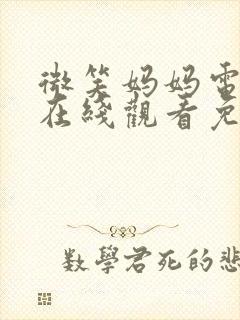 微笑妈妈電
在綫觀看免
数學君死的悲